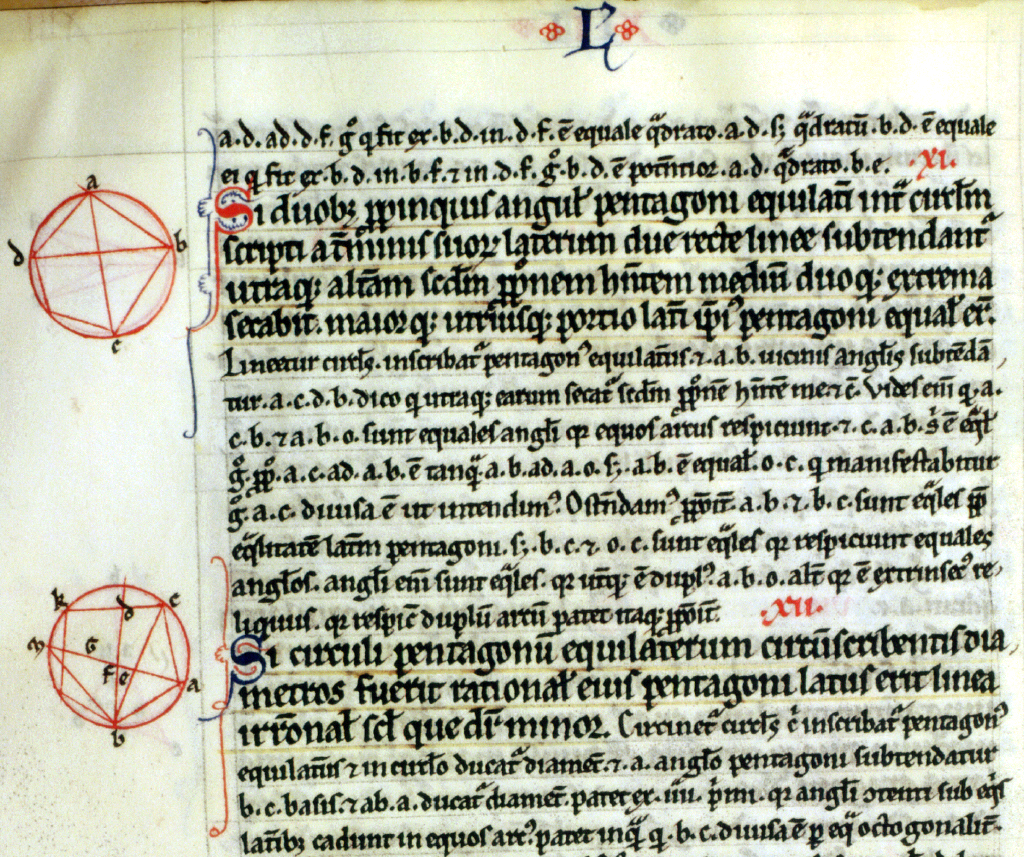 L
a.d. ad .d.f. gͦ q fit ex .b.d. in .d.f. ē equale q̄drato .a.d. s; q̄dratū .b.d. ē equale
ei q fit ex .b.d. in .b.f. ⁊ in .d.f. gͦ .b.d. ē potētior .a.d. q̄drato .b.e. .XI.
Si duobꝫ ꝓpinquis angul̄ pentagoni equilat̄i int̄ circl̄m
scripti a t̄minis suoꝝ laterum due recte linee subtendant᷑
utraqꝫ alt̄am scd̄m ꝓp̄onem hn̄tem mediū duoqꝫ extrema
secabit. maiorqꝫ utriusqꝫ portio lat̄i ip̄i᷒ pentagoni equal̄ er̄.
Lineetur circl̄s. inscribat᷑ pentagon᷒ equilat̄us ⁊ .a.b. uicinis angl̄is subtēdā
tur .a.c.d.b. dico q utraqꝫ earum secat᷑ scd̄m ꝓp̄onē hn̄tē me. ⁊ c̄. Vides eni q .a.
c.b. ⁊ .a.b.o. sunt equales angl̄i qꝛ equos arcus respiciunt. ⁊ .c.a.b. ē eq̄l̄
gͦ ꝓp̄o .a.c. ad .a.b. ē tanq̄ .a.b. ad .a.o. s; .a.b. ē equal̄ .o.c. q manifestabitur
gͦ .a.c. diuisa ē ut intendim᷒. Ostēdam᷒ .a.b. ⁊ .b.c. sunt eq̄les ꝓp̄
eq̄litatē lat̄um pentagoni. s; .b.c. ⁊ .o.c. sunt eq̄les qꝛ respiciunt equales
angl̄os. angl̄i eni sunt eq̄les. qꝛ ut̄qꝫ ē dupl᷒ .a.b.o. alt̄ qꝛ ē extrinsec᷒ re-
liquus. qꝛ respic̄ duplū arcū patet itaqꝫ .XII.
Si circuli pentagonū equilaterum circūscribentis dia
metros fuerit rational̄ eius pentagoni latus erit linea
irrōnal̄ scl̄ que dr̄ minor. Circinet᷑ circl̄s c̄ inscribat᷑ pentagon᷒
equilat̄us ⁊ in circl̄o ducat᷑ diamet̄ ⁊ .a. angl̄o pentagoni subtendatur
b.c. basis. ⁊ ab .a. ducat᷑ diamet̄. patet ex .iiii. p̄mi. qꝛ angl̄i ɔtenti sub eq̄is
lat̄ibꝫ cadunt in equos arc᷒. patet inq̄ q .b.c. diuisa ē p eq̄ octogonalit̄.
a
d
b
c
k
d
c
G
f
e
a
b